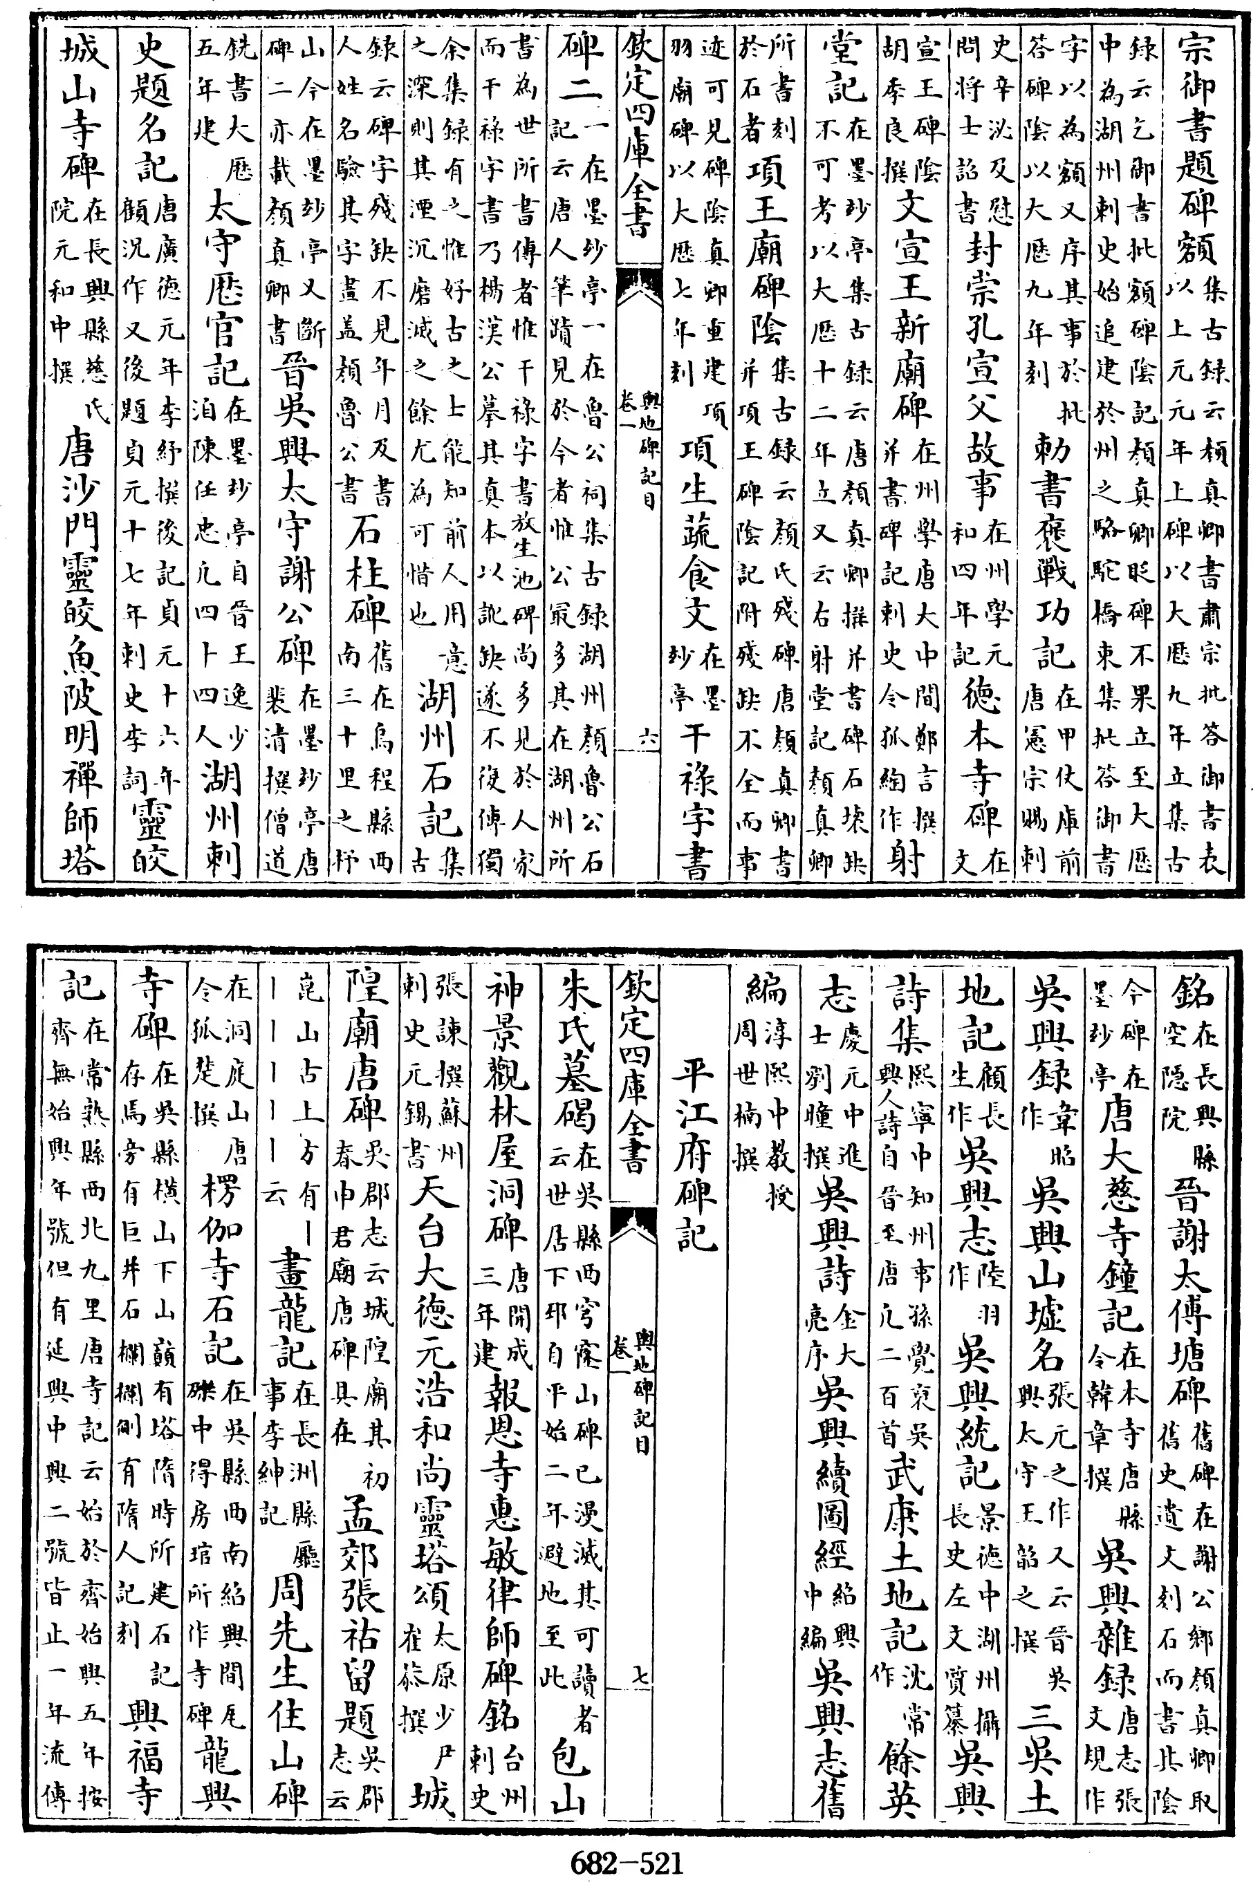 宗御書題碑額集古録云顔真卿書肅宗批答御書表以上元元年上碑以大厯九年立集古
録云乞御書批額碑陰記顔真卿貶碑不果立至大厯中為湖州刺史始追建於州之駱駝橋東集批答御書
字以為額又序其事於批答碑陰以大厯九年刻勅書褒戰功記在甲仗庫前唐憲宗賜刺
史辛泌及慰問將士詔書封崇孔宣父故事在州學元和四年記德本寺碑在文
宣王碑陰胡季良撰文宣王新廟碑在州學唐大中間鄭言撰并書碑記刺史令狐綯作射
堂記在墨妙亭集古録云唐顔真卿撰并書碑石壊缺不可考以大厯十二年立又云右射堂記顔真卿
所書刻於石者項王廟碑陰集古録云顔氏殘碑唐顔真卿書并項王碑陰記附殘缺不全而事
迹可見碑陰真卿重建項羽廟碑以大厯七年刻項生蔬食文在墨妙亭干祿字書
欽定四庫全書 輿地碑記目 卷一 六
碑二一在墨妙亭一在魯公祠集古録湖州顔魯公石記云唐人筆蹟見於今者惟公最多其在湖州所
書為世所書傳者惟干祿字書放生池碑尚多見於人家而干祿字書乃楊漢公摹其真本以訛缺遂不復傳獨
余集録有之惟好古之士能知前人用意之深則其湮沉磨滅之餘尤為可惜也湖州石記集古
録云碑字殘缺不見年月及書人姓名驗其字畫盖顔魯公書石柱碑舊在烏程縣西南三十里之杼
山今在墨妙亭又斷碑二亦載顔真卿書晉吳興太守謝公碑在墨妙亭唐裴清撰僧道
銑書大厯五年建太守厯官記在墨妙亭自晉王逸少洎陳任忠凢四十四人湖州刺
史題名記唐廣德元年李紓撰後記貞元十六年顧況作又後題貞元十七年刺史李詞靈皎
城山寺碑在長興縣慈氏院元和中撰唐沙門靈皎魚陂明禪師塔
銘在長興縣空隱院晉謝太傅塘碑舊碑在謝公鄉顔真卿取舊史遺文刻石而書其陰
今碑在墨妙亭唐大慈寺鐘記在本寺唐縣令韓章撰吳興雜録唐志張文規作
吳興録韋昭作吳興山墟名張元之作又云晉吳興太守王韶之撰三吳土
地記顧長生作吳興志陸羽作吳興統記景德中湖州攝長史左文質纂吳興
詩集熙寧中知州事孫覺裒吳興人詩自晉至唐凢二百首武康土地記沈常作餘英
志慶元中進士劉瞳撰吳興詩金大亮序吳興續圖經紹興中編吳興志舊
編淳熙中教授周世楠撰
平江府碑記
欽定四庫全書 輿地碑記目 卷一 七
朱氏墓碣在吳縣西穹窿山碑已漫滅其可讀者云世居下邳自平始二年避地至此包山
神景觀林屋洞碑唐開成三年建報恩寺惠敏律師碑銘台州刺史
張諫撰蘇州刺史元錫書天台大德元浩和尚靈塔頌太原少尹崔恭撰城
隍廟唐碑吳郡志云城隍廟其初春申君廟唐碑具在孟郊張祜留題吳郡志云
崑山古上方有丨丨丨丨丨丨云畫龍記在長洲縣廳事李紳記周先生住山碑
在洞庭山唐令狐楚撰楞伽寺石記在吳縣西南紹興間尾礫中得房琯所作寺碑龍興
寺碑在吳縣橫山下山巔有塔隋時所建石記存焉旁有巨井石欄欄側有隋人記刻興福寺
記在常熟縣西北九里唐寺記云始於齊始興五年按齊無始興年號但有延興中興二號皆止一年流傳
682-521